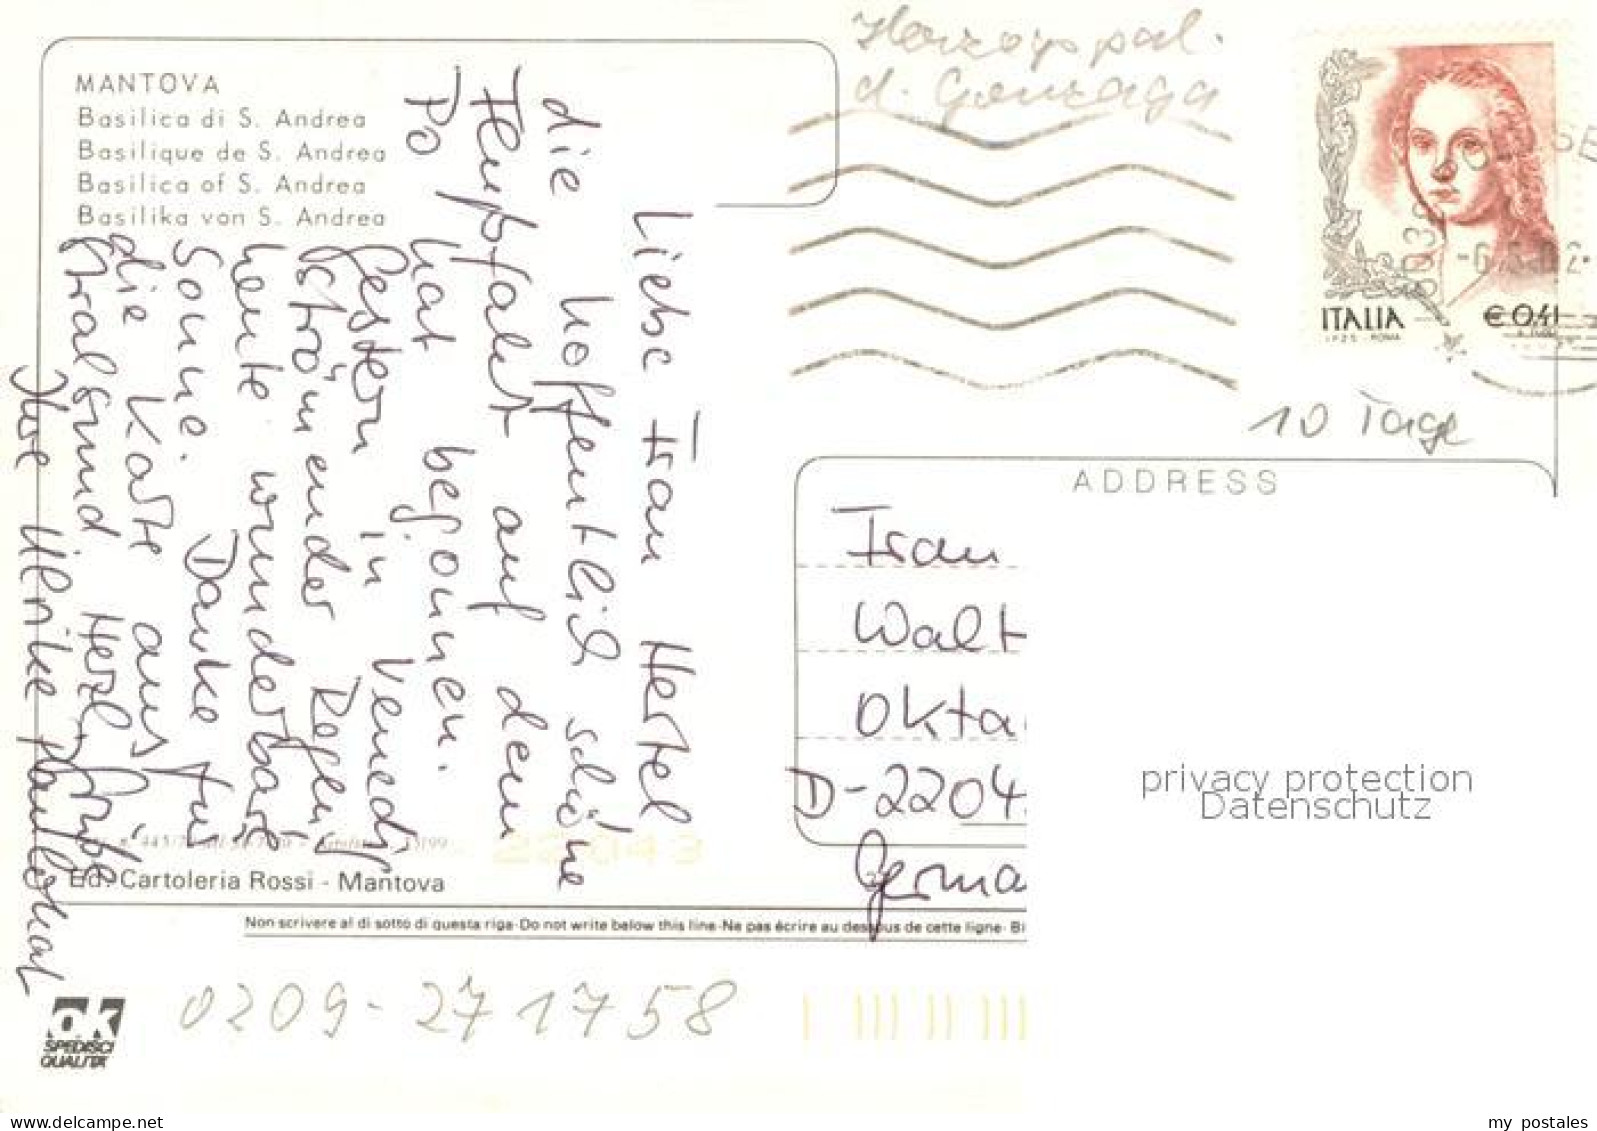 MANTOVA
Basilica di S. Andrea
Basilique de S. Andrea
Basilica of S. Andrea
Basilika von S. Andrea
Herzogspal.
d. Gonzaga
ITALIA
€ 0,41
I.P.Z.S. - ROMA
10 Tage
Liebe Frau Hertel
hoffentlich schöne
die
Flußfahrt auf dem
Po
hat begonnen.
Gestern in Venedig
strömender Regen,
heute wunderbare
Sonne. Danke für
die Karte aus
Stralsund Herzl. Grüße
Ihre Ulrike
ADDRESS
Frau
Walt
Okta
D-2204
Germa
22043
Ed. Cartoleria Rossi - Mantova
Non scrivere al di sotto di questa riga-Do not write below this line-Ne pas écrire au dessous de cette ligne- Bi
ok
SPEDISCI
QUALITA'
0209-271758
privacy protection
Datenschutz
www.delcampe.net
my_postales